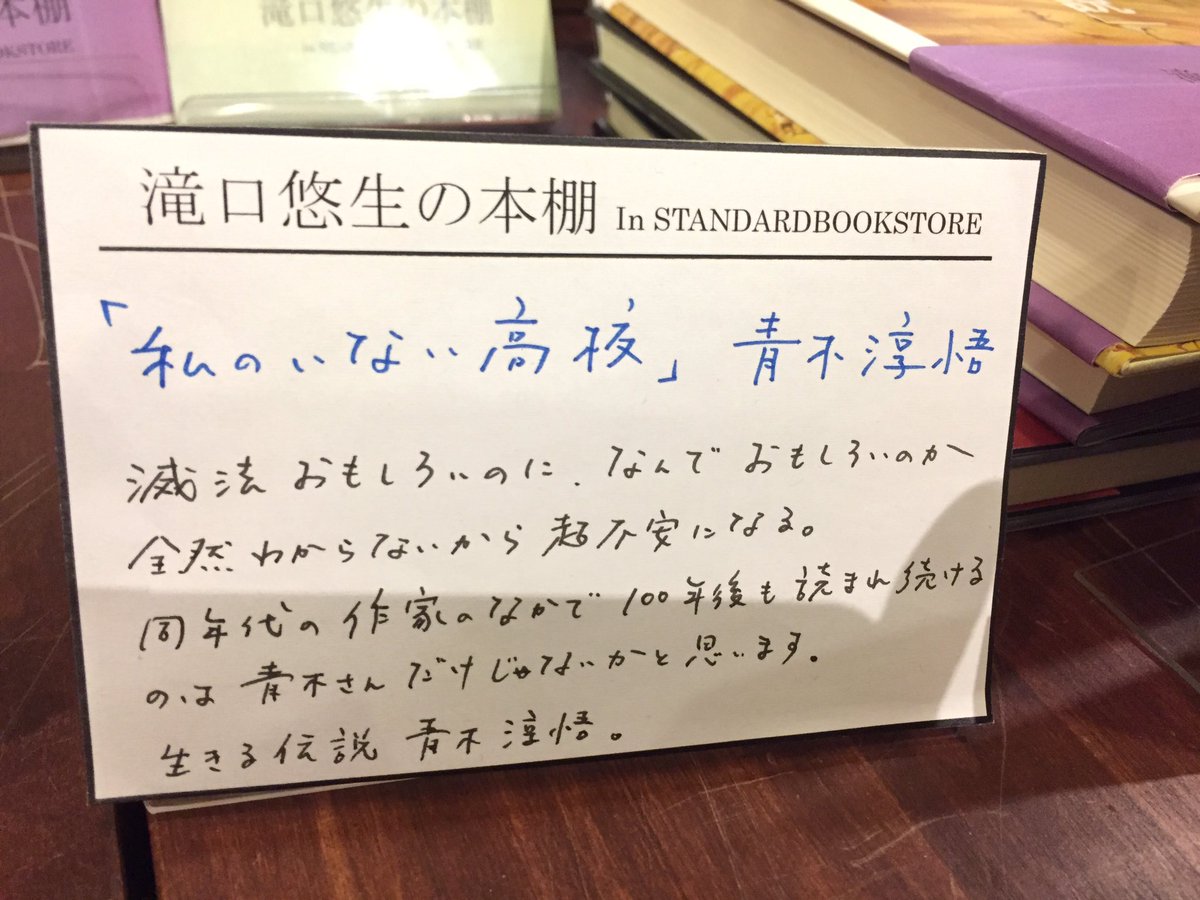 本棚
OKSTORE
滝口悠生の本棚
滝口悠生の本棚 In STANDARDBOOKSTORE
「私のいない高校」 青木淳悟
滅法おもしろいのに、なんでおもしろいのか
全然わからないから超不安になる。
同年代の作家のなかで100年後も読まれ続ける
のは青木さんだけじゃないかと思います。
生きる伝説 青木淳悟。